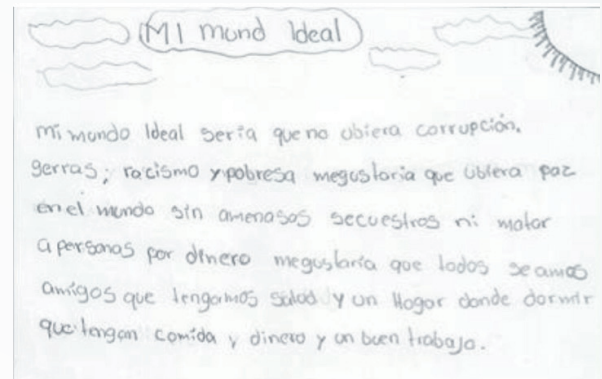 MI mund Ideal
mi mundo Ideal seria que no ubiera corrupción.
gerras, racismo y pobresa megustaria que ubiera paz
en el mundo sin amenasas secuestros ni matar
a personas por dinero megustaría que todos seamos
amigos que tengamos salud y un Hogar donde dormir
que tengan comida y dinero y un buen trabajo.